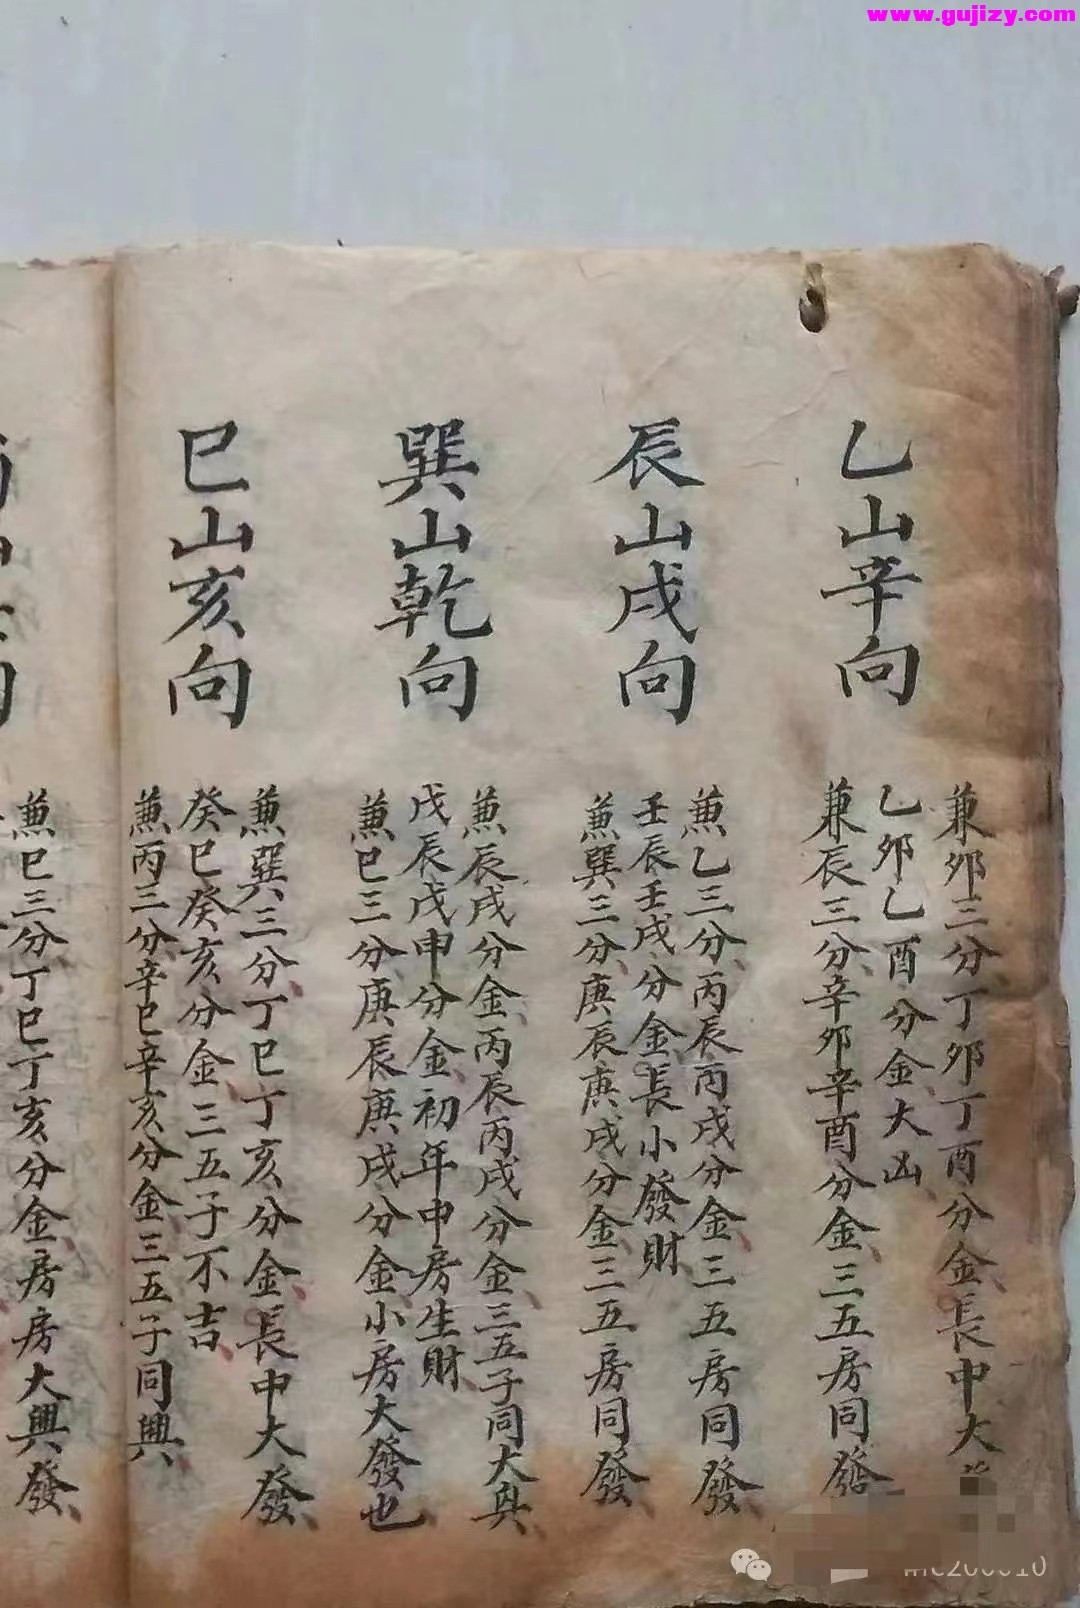 www.gujizy.com
乙山辛向
兼夘三分、丁夘丁酉分金、長中大
乙夘乙酉分金、大凶、
兼辰三分、辛夘辛酉分金、三五房同發
辰山戌向
兼乙三分、丙辰丙戌分金、三五房同發、
壬辰壬戌分金、長小發財、
兼巽三分、庚辰庚戌分金、三五房同發
巽山乾向
兼辰戌分金、丙辰丙戌分金、三五子同大興、
戊辰戊申分金、初年中房生財、
兼巳三分、庚辰庚戌分金、小房大發也
巳山亥向
兼巽三分、丁巳丁亥分金、長中大發、
癸巳癸亥分金、三五子不吉、
兼丙三分、辛巳辛亥分金、三五子同興
兼巳三分、丁巳丁亥分金、房房大興發、